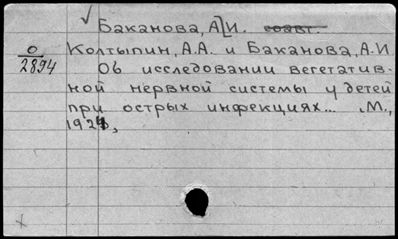 Баканова, А.И. соавт.
Колтыпин, А.А. и Баканова, А.И
О/2894
Об исследовании вегетатив-
ной нервной системы у детей
при острых инфекциях... М.,